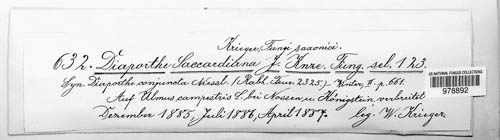 Krieger, Fungi saxonici.
632. Diaporthe Saccardiana J. Kunze. Fung. sel. 123.
Syn. Diaporthe conjuncta Nessl. (Rabl. Fun. eur. 2325.) Winter, II. p. 661.
Auf Ulmus campestris L. bei Nossen u. Königstein, verbreitet
Dezember 1885, Juli 1886, April 1887. leg. W. Krieger.
US NATIONAL FUNGUS COLLECTIONS
978892